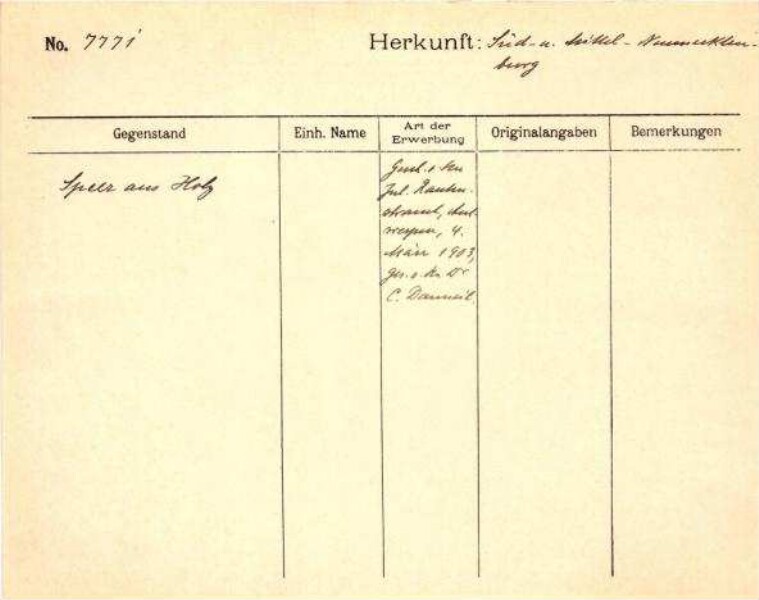 No. 7771
Herkunft: Süd- u. Mittel-Neumecklen-
burg
Gegenstand
Einh. Name
Art der
Erwerbung
Originalangaben
Bemerkungen
Speer aus Holz
Gesch. v. Hn
Jul. Rauten-
strauch, Ant-
werpen, 4.
März 1903,
ges. v. Hn. Dr
C. Danneil.